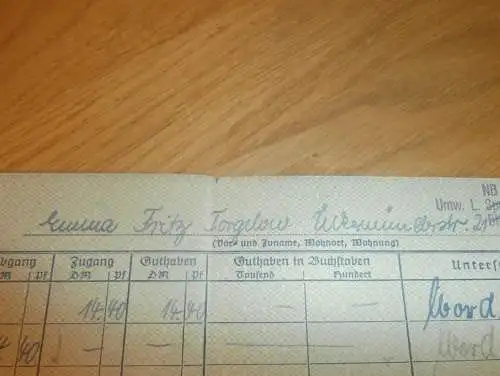 NB
Umw. L. Sp
Emma Fritz Torgelow Ückermünderstr. 21
(Vor- und Zuname, Wohnort, Wohnung)
bgang Zugang Guthaben Guthaben in Buchstaben Unters
M Pf DM Pf DM Pf Tausend Hundert
14.40 14.40 — — Word
40 — — — — Word